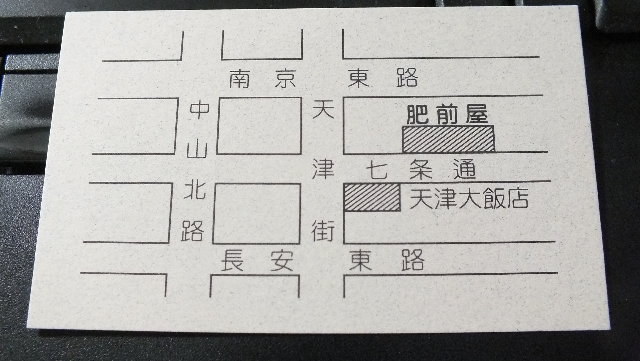 南京東路
中山北路
天津街
肥前屋
七条通
天津大飯店
長安東路